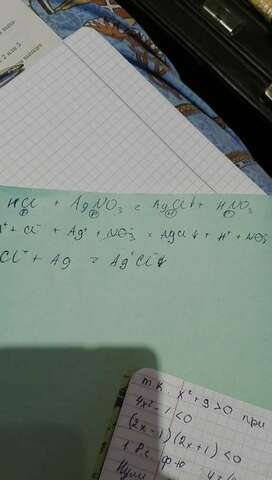 2 или 3.
HCl + AgNO₃ = AgCl↓ + HNO₃
⁺ + Cl⁻ + Ag⁺ + NO₃⁻ = AgCl↓ + H⁺ + NO₃⁻
Cl⁻ + Ag = Ag⁺Cl⁻↓
т.к. x² + 9 > 0 при
4x² - 1 < 0
(2x - 1)(2x + 1) < 0
Нули